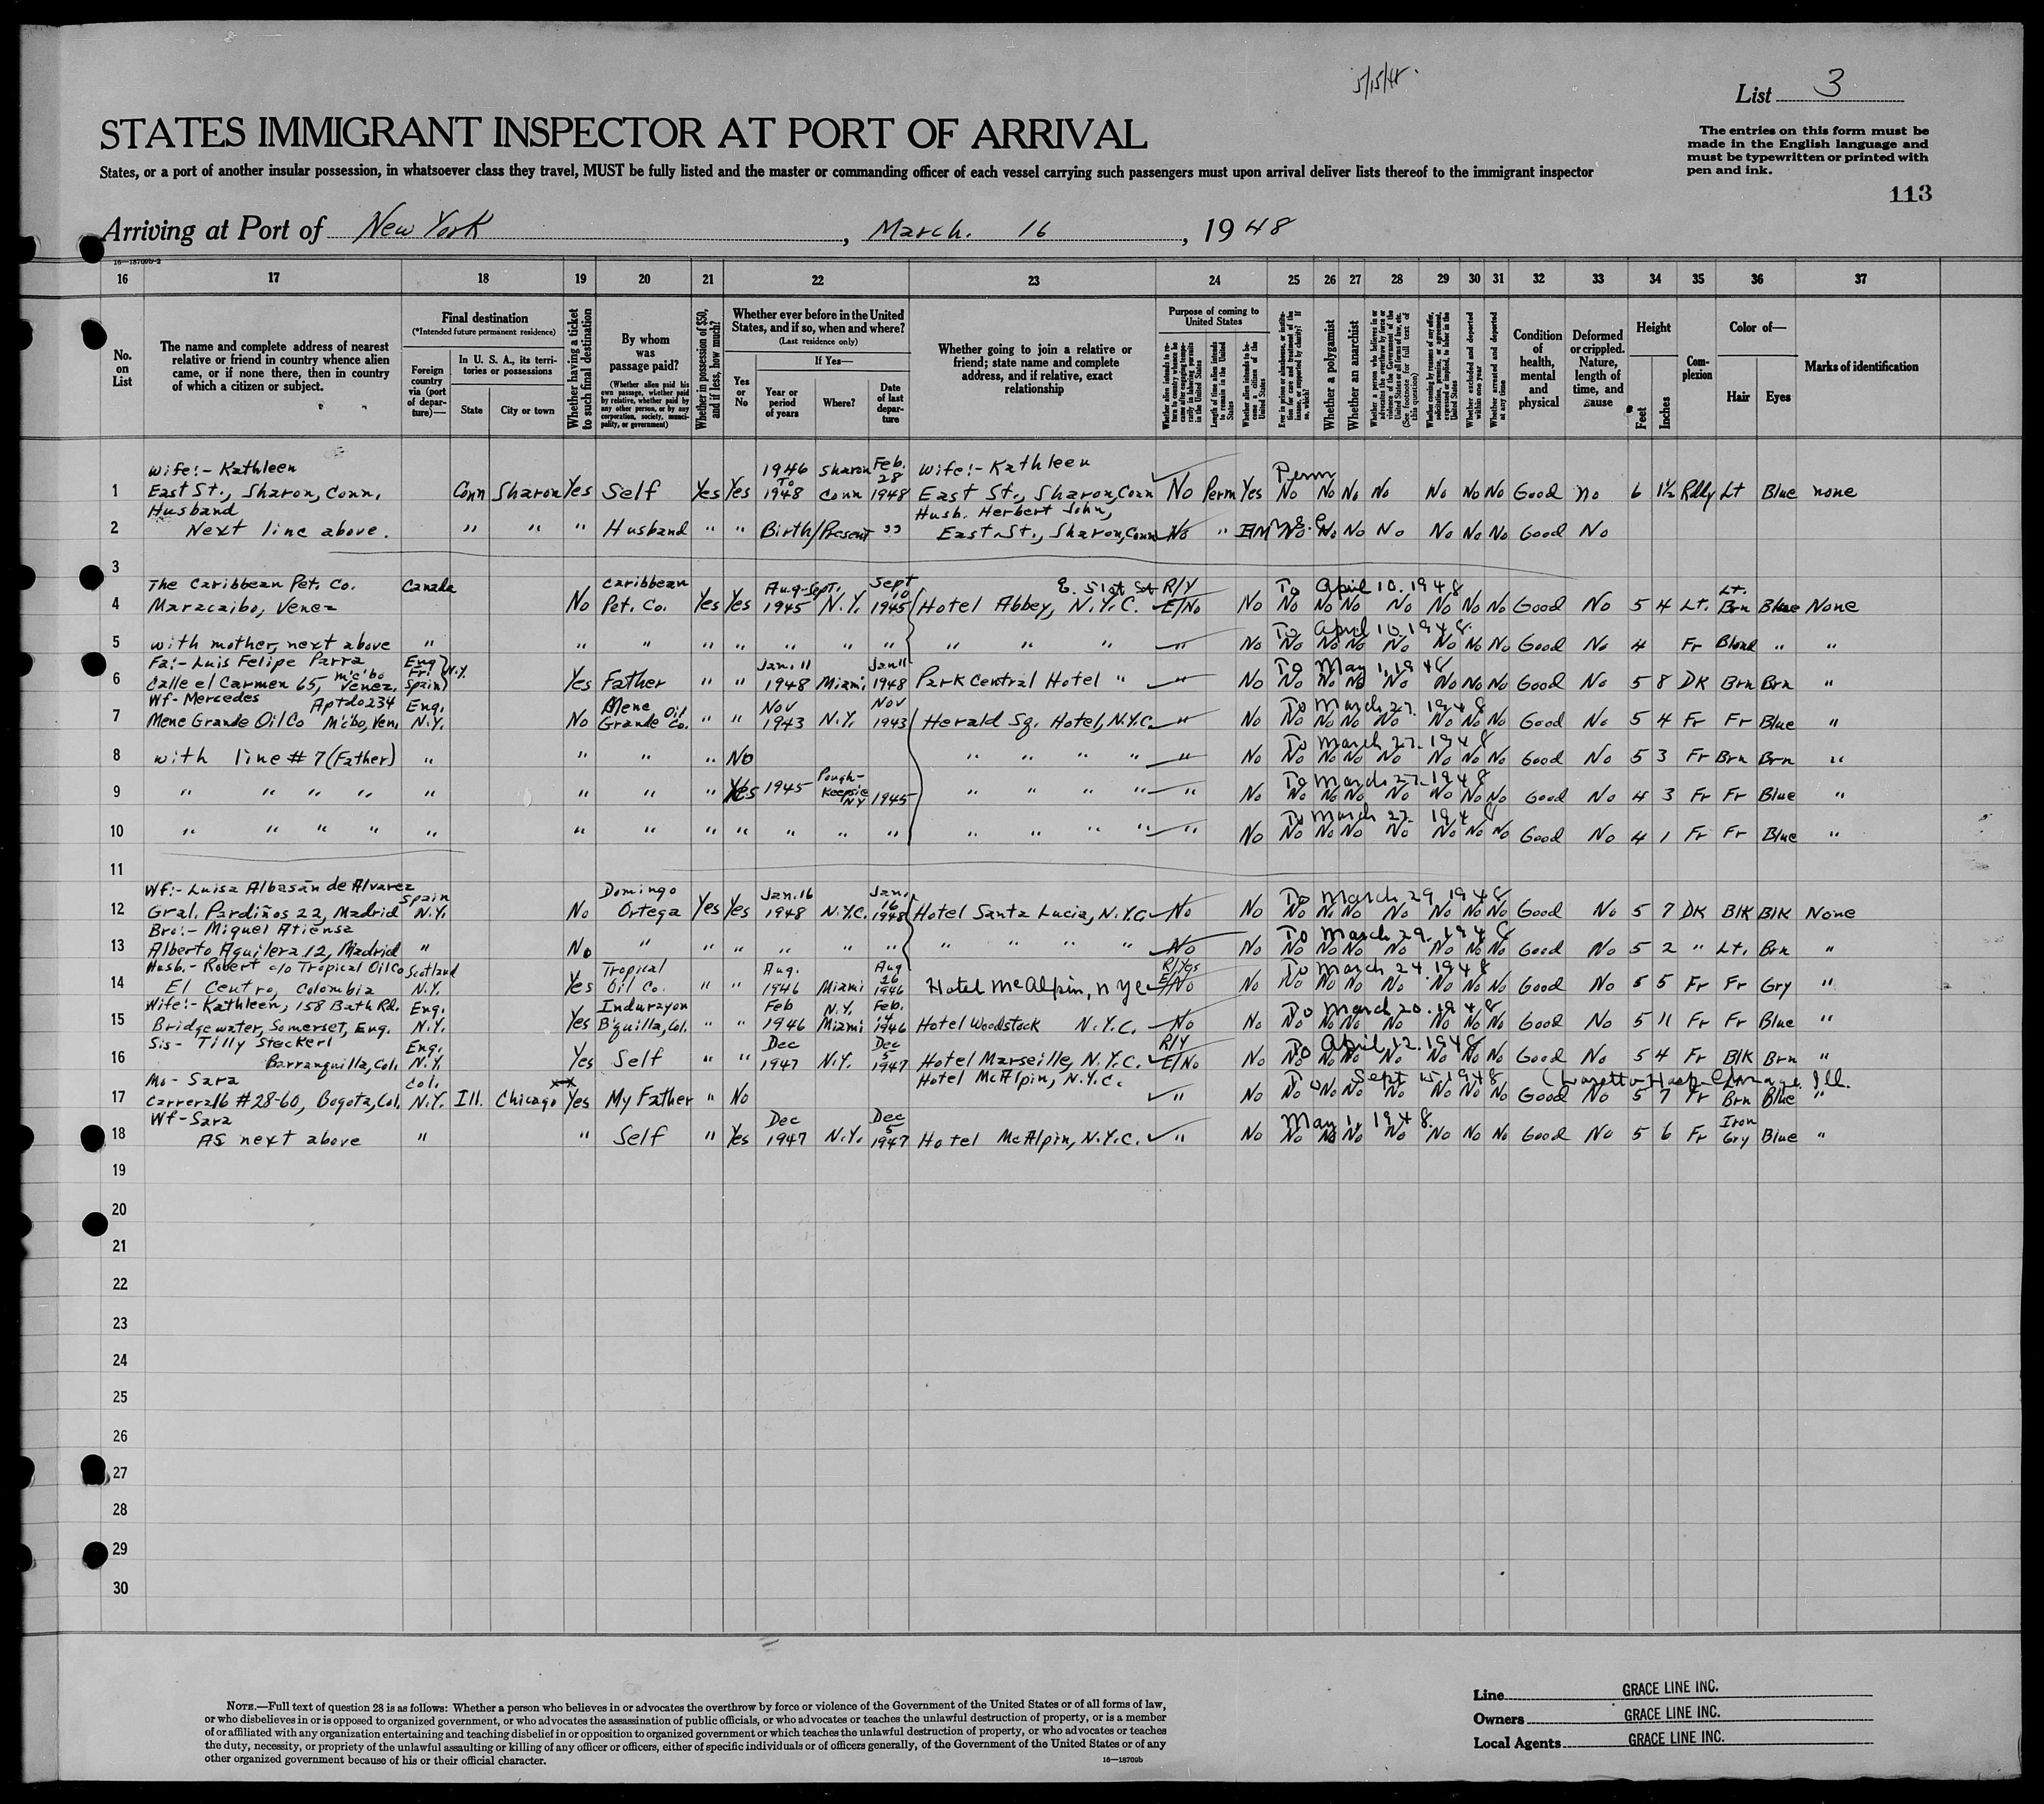 5/15/48.
List 3
STATES IMMIGRANT INSPECTOR AT PORT OF ARRIVAL
The entries on this form must be
made in the English language and
must be typewritten or printed with
pen and ink.
States, or a port of another insular possession, in whatsoever class they travel, MUST be fully listed and the master or commanding officer of each vessel carrying such passengers must upon arrival deliver lists thereof to the immigrant inspector
113
Arriving at Port of New York, March. 16, 1948
16—18709b-2
16 17 18 19 20 21 22 23 24 25 26 27 28 29 30 31 32 33 34 35 36 37
No. on List
The name and complete address of nearest relative or friend in country whence alien came, or if none there, then in country of which a citizen or subject.
Final destination
(*Intended future permanent residence)
Foreign country via (port of departure)—
In U. S. A., its territories or possessions
State
City or town
Whether having a ticket to such final destination
By whom was passage paid?
(Whether alien paid his own passage, whether paid by relative, whether paid by any other person, or by any corporation, society, municipality, or government)
Whether in possession of $50, and if less, how much?
Whether ever before in the United States, and if so, when and where?
(Last residence only)
Yes or No
If Yes—
Year or period of years
Where?
Date of last departure
Whether going to join a relative or friend; state name and complete address, and if relative, exact relationship
Purpose of coming to United States
Length of time alien intends to remain in the United States
Whether alien intends to become a citizen of the United States
Whether a polygamist
Whether an anarchist
Whether excluded and deported within one year
Whether arrested and deported at any time
Condition of health, mental and physical
Deformed or crippled. Nature, length of time, and cause
Height
Feet
Inches
Complexion
Color of—
Hair
Eyes
Marks of identification
1 Wife:- Kathleen East St., Sharon, Conn. Conn Sharon Yes Self Yes Yes 1946 To 1948 Sharon Conn Feb. 28 1948 Wife:- Kathleen East St., Sharon, Conn No Perm Yes Perm No No No No No No No Good no 6 1½ Rdly Lt Blue none
2 Husband Next line above. " " " Husband " " Birth/Present " Husb. Herbert John, East St., Sharon, Conn No " No No No No No No No Good No
3
4 The Caribbean Pet. Co. Maracaibo, Venez Canada No Caribbean Pet. Co. Yes Yes Aug-Sept. 1945 N.Y. Sept 10 1945 Hotel Abbey, N.Y.C. E. 51st St R/Y E/No No To April 10. 1948 No No No No No No No Good No 5 4 Lt. Lt. Brn Blue None
5 with mother, next above " " " " " " " " " " " " No To April 10. 1948 No No No No No No No Good No 4 Fr Blond " "
6 Fa:- Luis Felipe Parra Calle el Carmen 65, M'c'bo Venez. Eng Fr. Spain N.Y. Yes Father " " Jan. 11 1948 Miami Jan 11 1948 Park Central Hotel " " No To May 1, 1948 No No No No No No No Good No 5 8 DK Brn Brn "
7 Wf- Mercedes Aptdo 234 Mene Grande Oil Co M'c'bo, Ven. Eng. N.Y. No Mene Grande Oil Co. " " Nov 1943 N.Y. Nov 1943 Herald Sq. Hotel, N.Y.C. " No To March 27. 1948 No No No No No No No Good No 5 4 Fr Fr Blue "
8 with line # 7 (Father) " " " " No " " " " " No To March 27. 1948 No No No No No No No Good No 5 3 Fr Brn Brn "
9 " " " " " " " " Yes 1945 Pough-keepsie NY 1945 " " " " " No To March 27. 1948 No No No No No No No Good No 4 3 Fr Fr Blue "
10 " " " " " " " " " " " " " " " " " No To March 27. 1948 No No No No No No No Good No 4 1 Fr Fr Blue "
11
12 Wf:- Luisa Albasán de Alvarez Gral. Pardiños 22, Madrid Spain N.Y. No Domingo Ortega Yes Yes Jan. 16 1948 N.Y.C. Jan. 16 1948 Hotel Santa Lucia, N.Y.C. No No To March 29 1948 No No No No No No No Good No 5 7 DK Blk Blk None
13 Bro:- Miguel Atienza Alberto Aguilera 12, Madrid " No " " " " " " " " " " No No To March 29. 1948 No No No No No No No Good No 5 2 " Lt. Brn "
14 Husb.- Robert c/o Tropical Oil Co El Centro, Colombia Scotland N.Y. Yes Tropical Oil Co. " " Aug. 1946 Miami Aug 26 1946 Hotel McAlpin, NYC R/Yes E/No No To March 24. 1948 No No No No No No No Good No 5 5 Fr Fr Gry "
15 Wife:- Kathleen, 158 Bath Rd. Bridgewater, Somerset, Eng. Eng. N.Y. Yes Indurayon B'quilla, Col. " " Feb 1946 N.Y. Miami Feb. 14 1946 Hotel Woodstock N.Y.C. No No To March 20. 1948 No No No No No No No Good No 5 11 Fr Fr Blue "
16 Sis- Tilly Steckerl Barranquilla, Col. Eng. N.Y. Yes Self " " Dec 1947 N.Y. Dec 5 1947 Hotel Marseille, N.Y.C. R/Y E/No No To April 12. 1948 No No No No No No No Good No 5 4 Fr Blk Brn "
17 Mo- Sara Carrera 16 #28-60, Bogota, Col. Col. N.Y. Ill. Chicago Yes My Father " No Hotel McAlpin, N.Y.C. " No To Sept 15 1948 No No No No No No Good No 5 7 Fr Brn Blue " Ill.
18 Wf- Sara As next above " " Self " Yes Dec 1947 N.Y. Dec 5 1947 Hotel McAlpin, N.Y.C. " No May 1, 1948. No No No No No No No Good No 5 6 Fr Iron Gry Blue "
19
20
21
22
23
24
25
26
27
28
29
30
NOTE.—Full text of question 28 is as follows: Whether a person who believes in or advocates the overthrow by force or violence of the Government of the United States or of all forms of law,
or who disbelieves in or is opposed to organized government, or who advocates the assassination of public officials, or who advocates or teaches the unlawful destruction of property, or is a member
of or affiliated with any organization entertaining and teaching disbelief in or opposition to organized government or which teaches the unlawful destruction of property, or who advocates or teaches
the duty, necessity, or propriety of the unlawful assaulting or killing of any officer or officers, either of specific individuals or of officers generally, of the Government of the United States or of any
other organized government because of his or their official character.
16—18709b
Line GRACE LINE INC.
Owners GRACE LINE INC.
Local Agents GRACE LINE INC.